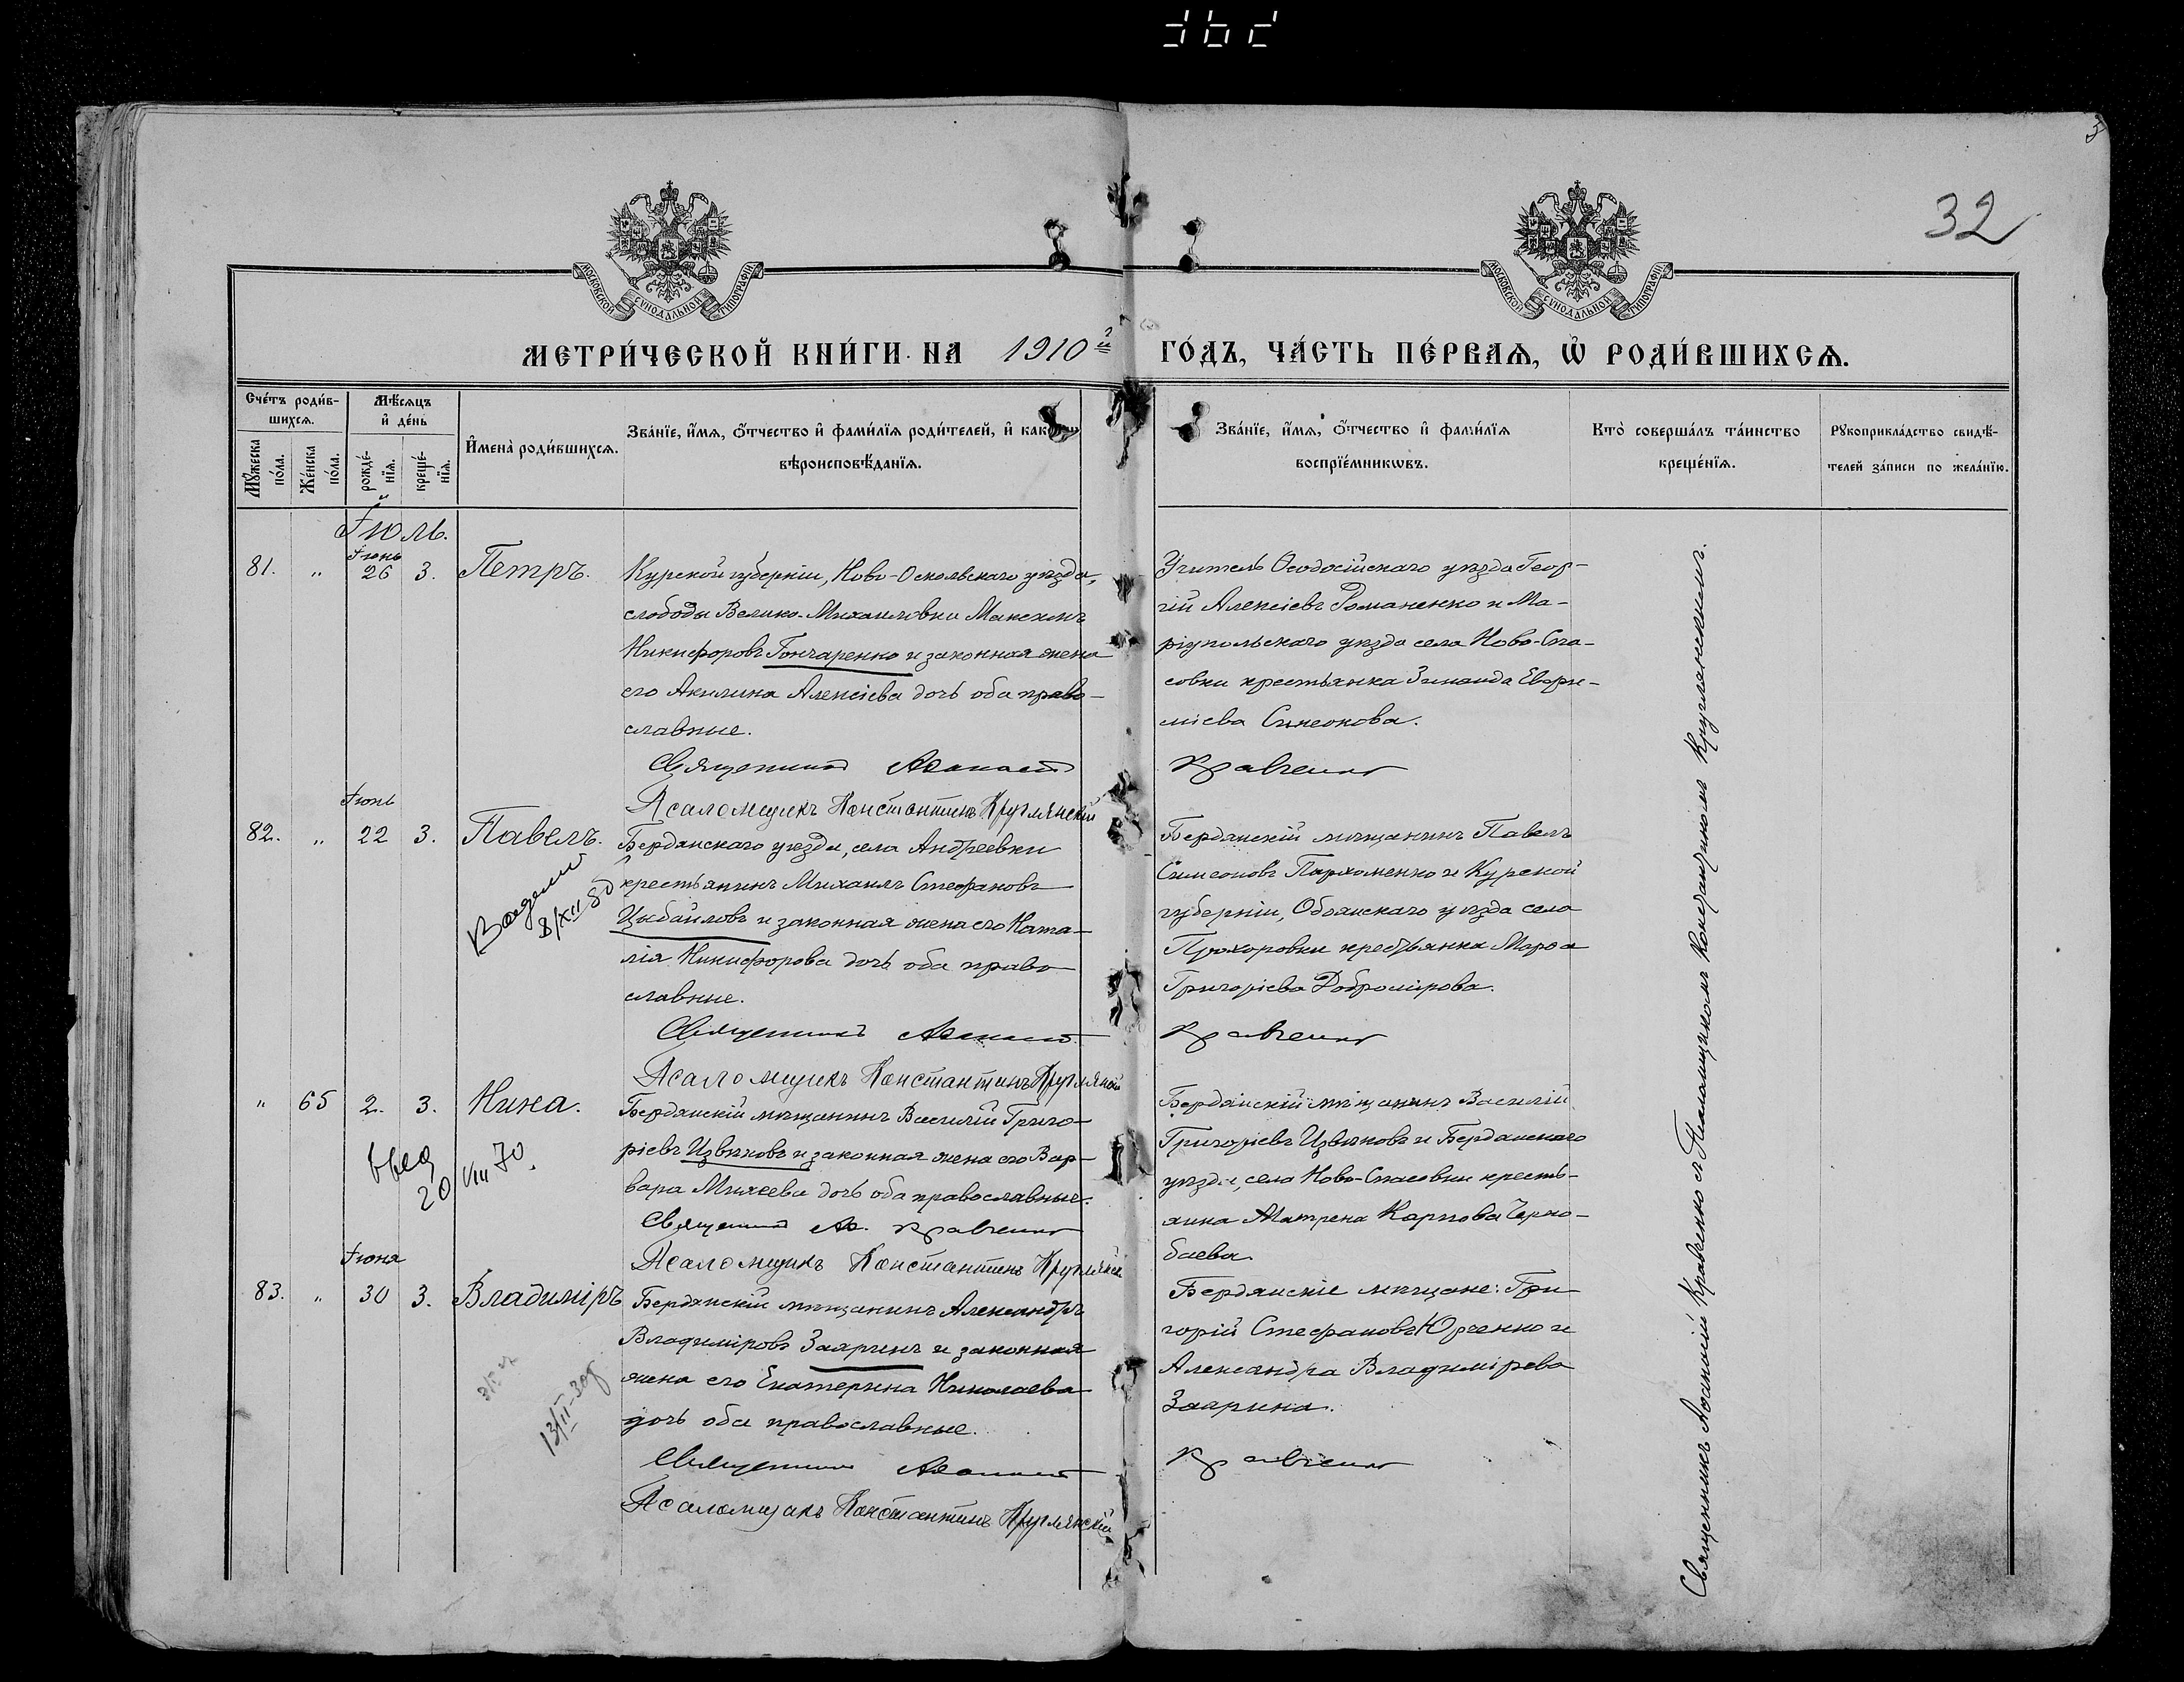 32
МОСКОВСКОЙ СѴНОДАЛЬНОЙ ТИПОГРАФІИ
МОСКОВСКОЙ СѴНОДАЛЬНОЙ ТИПОГРАФІИ
МЕТРИ́ЧЕСКОЙ КНИ́ГИ НА 1910й ГО́ДЪ, ЧА́СТЬ ПЕ́РВАѦ, Ѡ҆ РОДИ́ВШИХСѦ.
Сче́тъ роди́в-
шихсѧ.
Мꙋ́жеска по́ла.
Же́нска по́ла.
Мѣ́сѧцъ
и҆ де́нь
рожде́-
нїѧ.
креще́-
нїѧ.
И҆мена̀ роди́вшихсѧ.
Зва́нїе, и҆́мѧ, ѻ҆́тчество и҆ фами́лїѧ роди́телей, и҆
вѣроисповѣ́данїѧ.
Зва́нїе, и҆́мѧ, ѻ҆́тчество и҆ фами́лїѧ
воспрїе́мникѡвъ.
Кто̀ соверша́лъ та́инство
креще́нїѧ.
Рꙋкоприкла́дство свидѣ́-
телей за́писи по жела́нїю.
Іюль.
Іюнь
81. " 26 3. Петръ.
Курской губерніи, Ново-Оскольскаго уѣзда,
слободы Велико-Михайловки Максимъ
Никифоровъ Гончаренко и законная жена
его Акилина Алексіева дочь оба право-
славные.
Священникъ Аѳанасій Кравченко
Псаломщикъ Константинъ Круглянскій
Учитель Ѳеодосійскаго уѣзда Геор-
гій Алексіевъ Романенко и Ма-
ріупольскаго уѣзда села Ново-Спа-
совки крестьянка Зинаида Евфи-
міева Симеонова.
Іюнь
82. " 22 3. Павелъ.
8/XII 50
Бердянскаго уѣзда, села Андреевки
крестьянинъ Михаилъ Стефановъ
Цыбайловъ и законная жена его Ната-
лія Никифорова дочь оба право
славные.
Священникъ Аѳанасій Кравченко
Псаломщикъ Константинъ Круглянскій
Бердянскій мѣщанинъ Павелъ
Симеоновъ Пархоменко и Курской
губерніи, Обоянскаго уѣзда села
Прохоровки крестьянка Марѳа
Григоріева Добромірова.
" 65 2. 3. Нина.
20/VIII 70.
Бердянскій мѣщанинъ Василій Григо-
ріевъ Извѣковъ и законная жена его Вар-
вара Михеева дочь оба православные.
Священникъ Аѳ. Кравченко
Псаломщикъ Константинъ Круглянскій
Бердянскій мѣщанинъ Василій
Григоріевъ Извѣковъ и Бердянскаго
уѣзда, села Ново-Спасовки кресть-
янка Матрена Карпова Черно-
баева.
Іюня
83. " 30 3. Владиміръ
13/II-30г
Бердянскій мѣщанинъ Александръ
Владиміровъ Зааринъ и законная
жена его Екатерина Николаева
дочь оба православные.
Священникъ Аѳанасій Кравченко
Псаломщикъ Константинъ Круглянскій
Бердянскіе мѣщане: Гри-
горій Стефановъ Юрченко и
Александра Владимірова
Заарина.
Священникъ Аѳанасій Кравченко съ Псаломщикомъ Константиномъ Круглянскимъ.